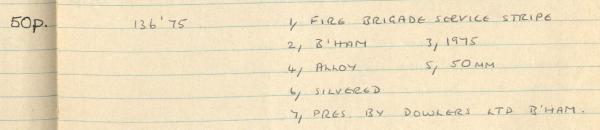 50p. 136'75 1, FIRE BRIGADE SERVICE STRIPE
2, B'HAM 3, 1975
4, ALLOY 5, 50MM
6, SILVERED
7, PRES. BY DOWLERS LTD B'HAM.